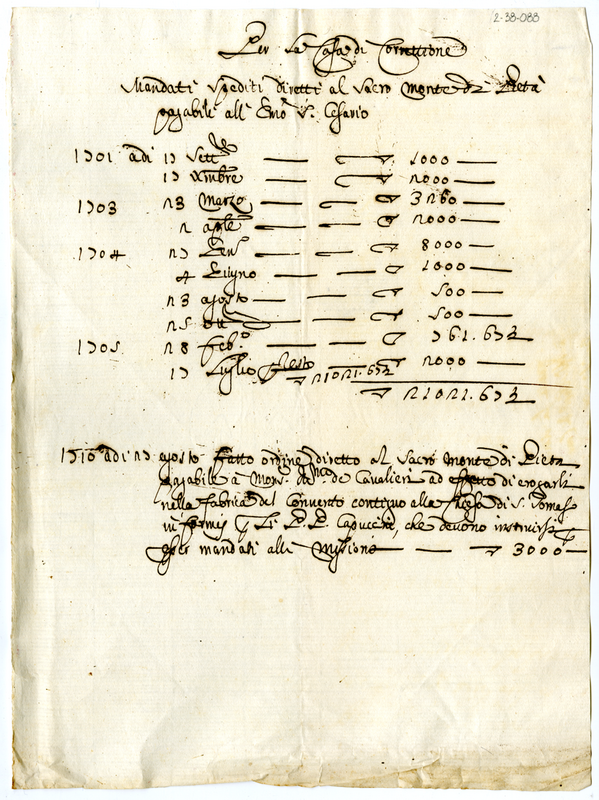 2-38-088
Per la Casa di Correttione
Mandati spediti diretti al Sacro Monte di Pietà
pagabile all Emo S. Cesario
1701 adi 17 Sett.e 1000
17 Xmbre 2000
1703 23 Marzo 3260
2 aple 2000
1704 27 8000
4 Giugno 1000
23 agosto 500
25 500
1705 28 feb.o 761.63
17 Luglio 2000
21021.63
21021.63
1710 adi 27 agosto fatto ordine diretto al Sacro Monte di Pietà
pagabile à Mons. de Cavalieri ad effetto di erogarli
nella fabrica del Convento contiguo alla Chiesa di S. Tomaso
in formis p li P.P. Capuccini, che devono instruirsi
esser mandati alle Missione 3000